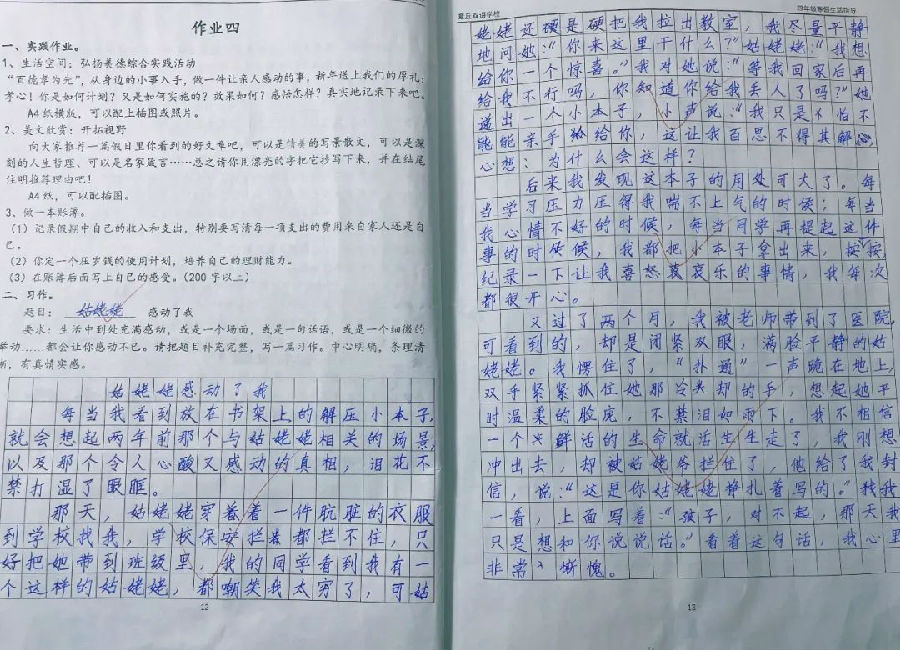 作业四
一、实践作业。
1、生活空间：弘扬美德综合实践活动
“百德孝为先”，从身边的小事入手，做一件让亲人感动的事，新年送上我们的厚礼：
孝心！你是如何计划？又是如何实施的？效果如何？感悟怎样？真实地记录下来吧。
A4纸横放，可以配上插图或照片。
2、美文欣赏：开拓视野
向大家推荐一篇假日里你看到的好文章吧，可以是情美的写景散文，可以是深
刻的人生哲理、可以是名家箴言……总之请你用漂亮的字把它抄写下来，并在结尾
注明推荐理由吧！
A4纸，可以配插图。
3、做一本账簿。
（1）记录假期中自己的收入和支出，特别要写清每一项支出的费用来自家人还是自
己。
（2）你定一个压岁钱的使用计划，培养自己的理财能力。
（3）在账簿后面写上自己的感受。（200字以上）
二、习作。
题目：姑姥姥 感动了我
要求：生活中到处充满感动，或是一个场面，或是一句话语，或是一个细微的
举动……都会让你感动不已。请把题目补充完整，写一篇习作。中心明确，条理清
晰，有真情实感。
姑姥姥感动了我
每当我看到放在书架上的解压小本子，
就会想起两年前那个与姑姥姥相关的场景，
以及那个令人心酸又感动的真相，泪花不
禁打湿了眼眶。
那天，姑姥姥穿着着一件肮脏的衣服
到学校找我，学校保安拦着都拦不住，只
好把她带到班级里，我的同学看到我有一
个这样的姑姥姥，都嘲笑我太穷了，可姑
12
四年级寒假生活指导
姥姥还硬是硬把我拉出教室，我尽量平静
地问她：“你来这里干什么？”姑姥姥：“我想
给你一个惊喜。”我对她说：“等我回家后再
给我不行吗，你知道你给我丢人了吗？”她
递出一个小本子，小声说：“我只是不怕不
能能亲手给你，这让我百思不得其解，
心想：为什么会这样？
后来我发现这本子的用处可大了。每
当学习压力压得我喘不上气的时候；每当
我心情不好的时候，每当同学再提起这件
事的时候，我都把小本子拿出来，按按，
纪录一下让我喜怒哀乐的事情，我每次
都很开心。
又过了两个月，我被老师带到了医院，
可看到的，却是闭紧双眼，满脸平静的姑
姥姥。我愣住了，“扑通”一声跪在地上，
双手紧紧抓住她那冷却的手，想起她平
时温柔的脸庞，不禁泪如雨下。我不相信
一个鲜活的生命就活生生走了，我刚想
冲出去，却被姑姥爷拦住了，他给了我封
信，说：“这是你姑姥姥挣扎着写的。”我
一看，上面写着：“孩子，对不起，那天我
只是想和你说说话。”看着这句话，我心里
非常惭愧。
13